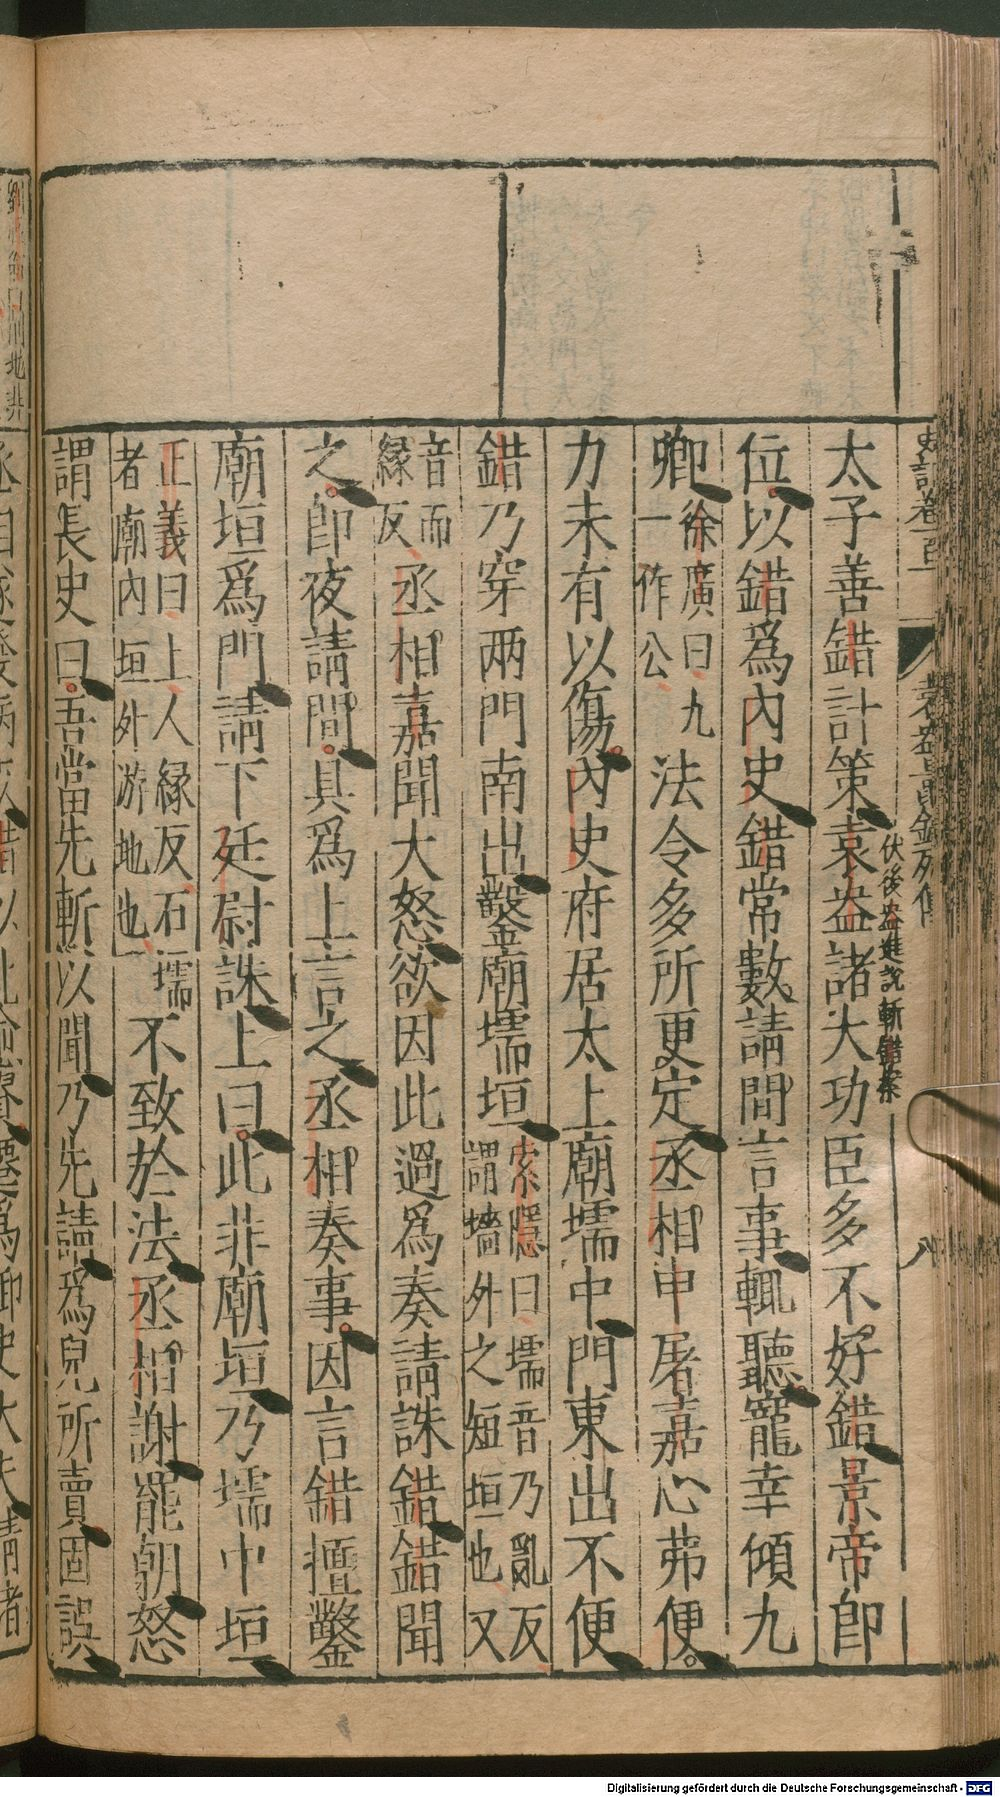 太子善錯計策袁盎諸大功臣多不好錯景帝卽
伏後盎進說斬錯案
位以錯爲內史錯常數請間言事輒聽寵幸傾九
卿徐廣曰九一作公法令多所更定丞相申屠嘉心弗便
力未有以傷內史府居太上廟壖中門東出不便
錯乃穿兩門南出鑿廟壖垣索隱曰壖音乃亂反謂墻外之短垣也又
音而緣反丞相嘉聞大怒欲因此過爲奏請誅錯錯聞
之卽夜請間具爲上言之丞相奏事因言錯擅鑿
廟垣爲門請下廷尉誅上曰此非廟垣乃壖中垣
正義曰上人緣反石壖者廟內垣外游地也不致於法丞相謝罷朝怒
謂長史曰吾當先斬以聞乃先請爲兒所賣固誤
八
Digitalisierung gefördert durch die Deutsche Forschungsgemeinschaft - DFG